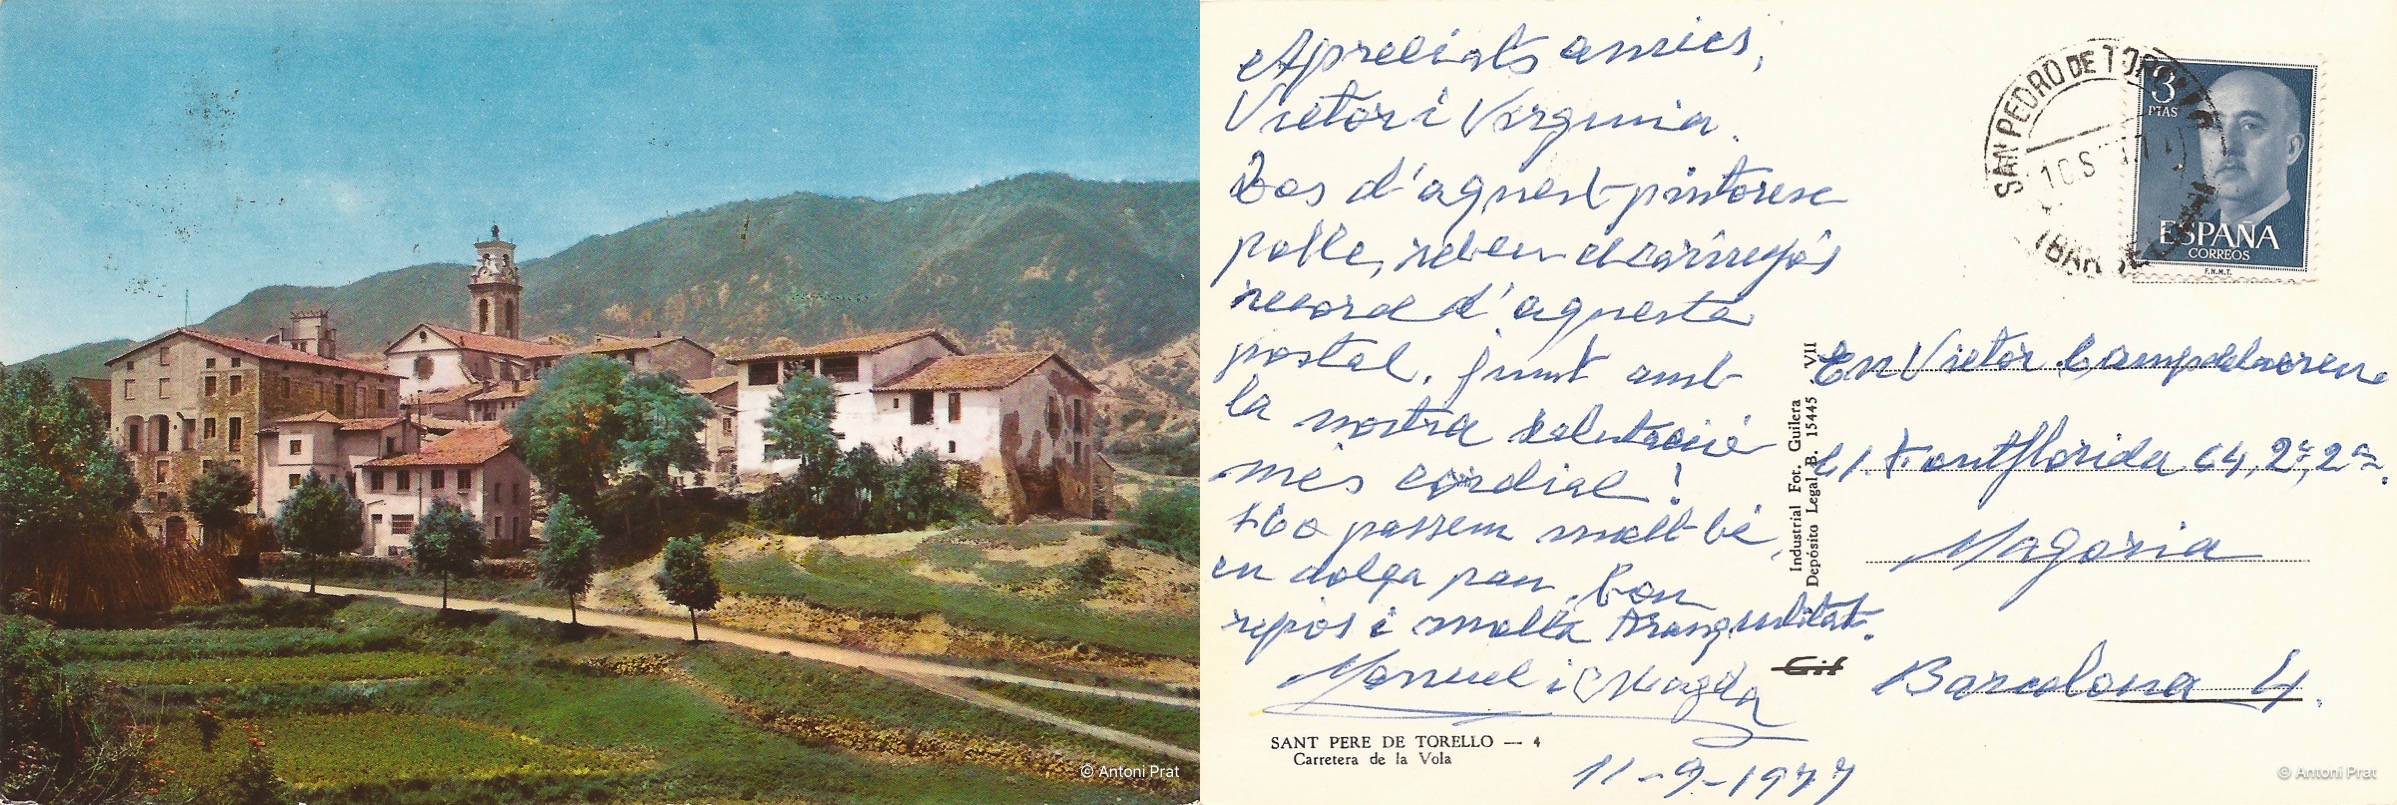 © Antoni Prat
Apreciats amics,
Victor i Verginia.
Des d'aquest pintoresc
poble, rebeu el carinyós
record d'aquesta
postal, junt amb
la nostra salutació
més cordial!
Ho passem molt bé,
en dolça pau, bon
repós i molta tranquilitat.
Manuel i Magda
11-9-1977
SANT PERE DE TORELLO — 4
Carretera de la Vola
Industrial Fot. Guilera
Depósito Legal B. 15445 VII
SAN PEDRO DE TORELLO
3
PTAS
ESPAÑA
CORREOS
F.N.M.T.
En Victor
C/. Fontflorida 64, 2º, 2ª.
Magoria
Barcelona 4.
© Antoni Prat